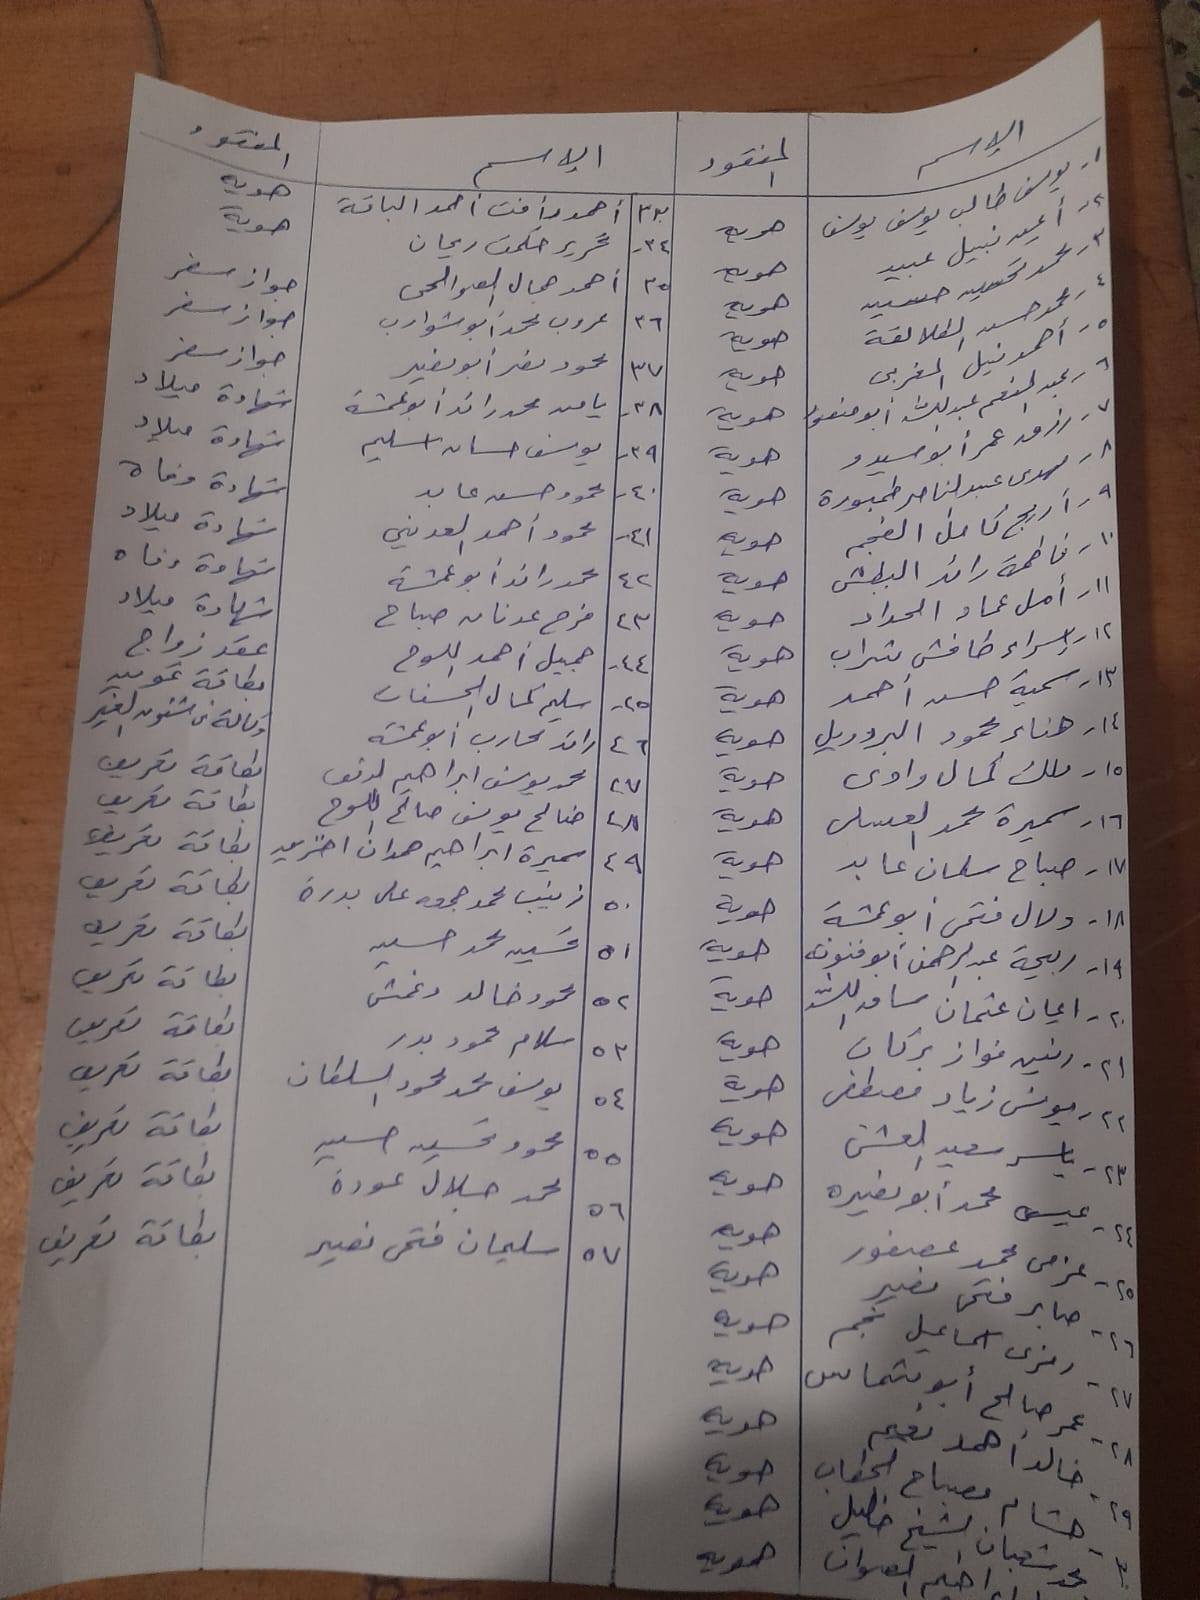 الإسم المفقود الإسم المفقود
١- يوسف طالب يوسف يوسف هوية
٢- أعيد نبيل عبيد هوية
٣- محمد تحسين حسين هوية
٤- محمد حسن الطلالقة هوية
٥- أحمد نبيل المغربي هوية
٦- عبد المنعم عبد الله أبو هوية
٧- رزق عمر أبو سيدو هوية
٨- مهدي عبد الناصر طمبورة هوية
٩- أريج كامل الفجم هوية
١٠- فاطمة رائد البطش هوية
١١- أمل عماد الحداد هوية
١٢- إسراء طافش شراب هوية
١٣- سمية حسن أحمد هوية
١٤- هناء محمود البرديل هوية
١٥- ملك كمال وادي هوية
١٦- سميرة محمد العسلي هوية
١٧- صباح سلمان عابد هوية
١٨- دلال فتحي أبو عمشة هوية
١٩- ربيحة عبد الرحمن أبو فنونة هوية
٢٠- ايمان عثمان ساق الله هوية
٢١- رنين فواز بركات هوية
٢٢- يونس زياد مصطفى هوية
٢٣- ياسر سعيد العشي هوية
٢٤- عيسى محمد أبو نصيره هوية
٢٥- عزمي محمد عصفور هوية
٢٦- صابر فتحي نصير هوية
٢٧- رمزي اسماعيل نجم هوية
٢٨- عمر صالح أبو شماس هوية
٢٩- خالد أحمد نعيم هوية
هشام مصباح الخطاب هوية
٣٠- محمد شعبان الشيخ خليل هوية
هوية
٣٣ أحمد رأفت أحمد الباقة هوية
٣٤- تحرير حكمت ريحان هوية
٣٥ أحمد جمال الصوالحي جواز سفر
٣٦ عروب محمد أبو شوارب جواز سفر
٣٧ محمود نصر أبو نصير جواز سفر
٣٨- يامن محمد رائد أبو عمشة شهادة ميلاد
٣٩- يوسف حسان اسليم شهادة ميلاد
٤٠- محمود حسن عابد شهادة وفاة
٤١- محمود أحمد العديني شهادة ميلاد
٤٢ محمد رائد أبو عمشة شهادة وفاه
٤٣ فرح عدنان صباح شهادة ميلاد
٤٤- جميل أحمد اللوح عقد زواج
٤٥- سليم كمال الحسنات بطاقة تموين
٤٦ رائد محارب أبو عمشة وكالة في شئون الغير
٤٧ محمد يوسف ابراهيم بطاقة تعريف
٤٨ صالح يوسف صالح اللوح بطاقة تعريف
٤٩ سميرة ابراهيم حمدان بطاقة تعريف
٥٠ زينب محمد علي بدرة بطاقة تعريف
٥١ تحسين محمد حسين بطاقة تعريف
٥٢ محمود خالد دغمش بطاقة تعريف
٥٣ سلام محمود بدر بطاقة تعريف
٥٤ يوسف محمد محمود السلطان بطاقة تعريف
٥٥ محمود تحسين حسين بطاقة تعريف
٥٦ محمد جلال عودة بطاقة تعريف
٥٧ سليمان فتحي نصير بطاقة تعريف